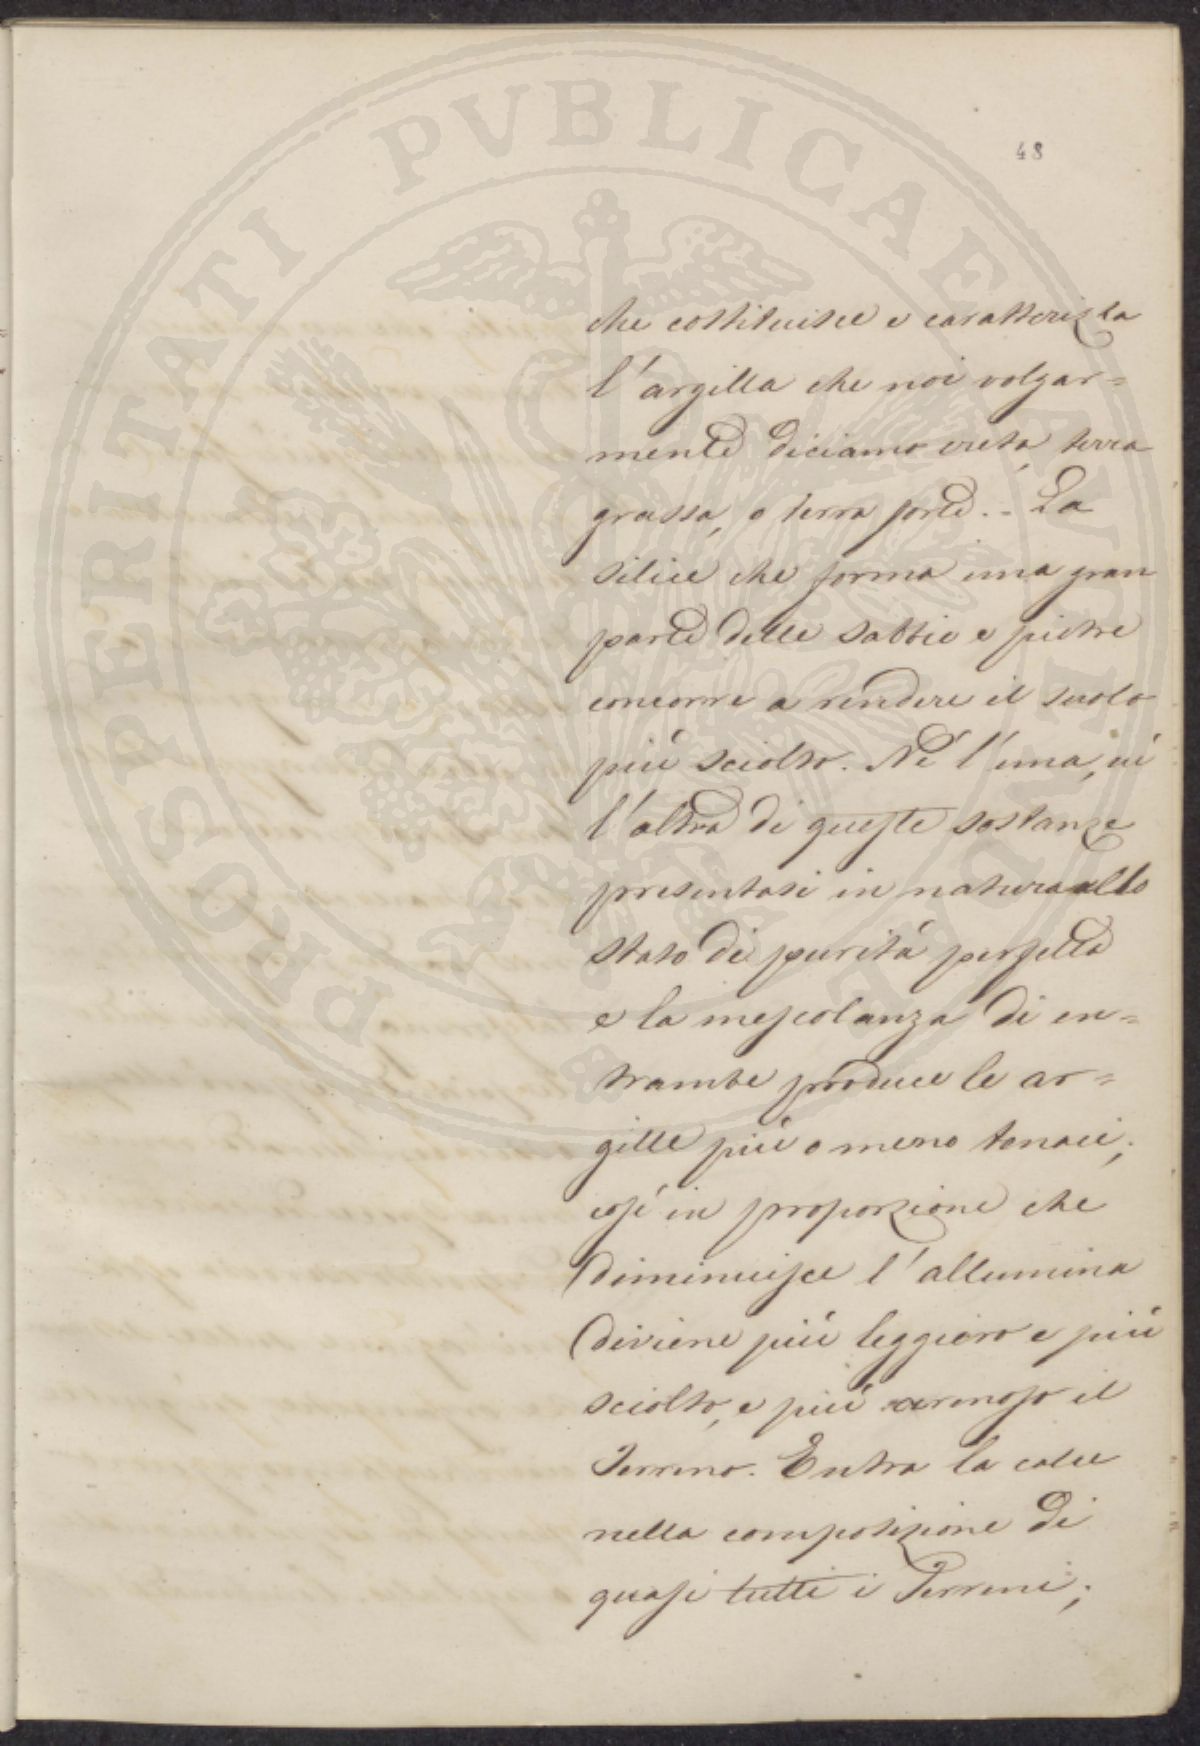 PROSPERITATI PUBLICAE AUGENDAE
48
che costituisce e caratterizza
l'argilla che noi volgar=
mente diciamo creta, terra
grassa, o terra forte.- La
silice che forma una gran
parte delle sabbie e pietre
concorre a rendere il suolo
più sciolto. Nè l'una, nè
l'altra di queste sostanze
presentasi in natura allo
stato di purità perfetta
e la mescolanza di en=
trambe produce le ar=
gille più o meno tenaci;
così in proporzione che
diminuisce l'allumina
diviene più leggiero e più
sciolto, e più arenoso il
Terreno. Entra la calce
nella composizione di
quasi tutti i Terreni;